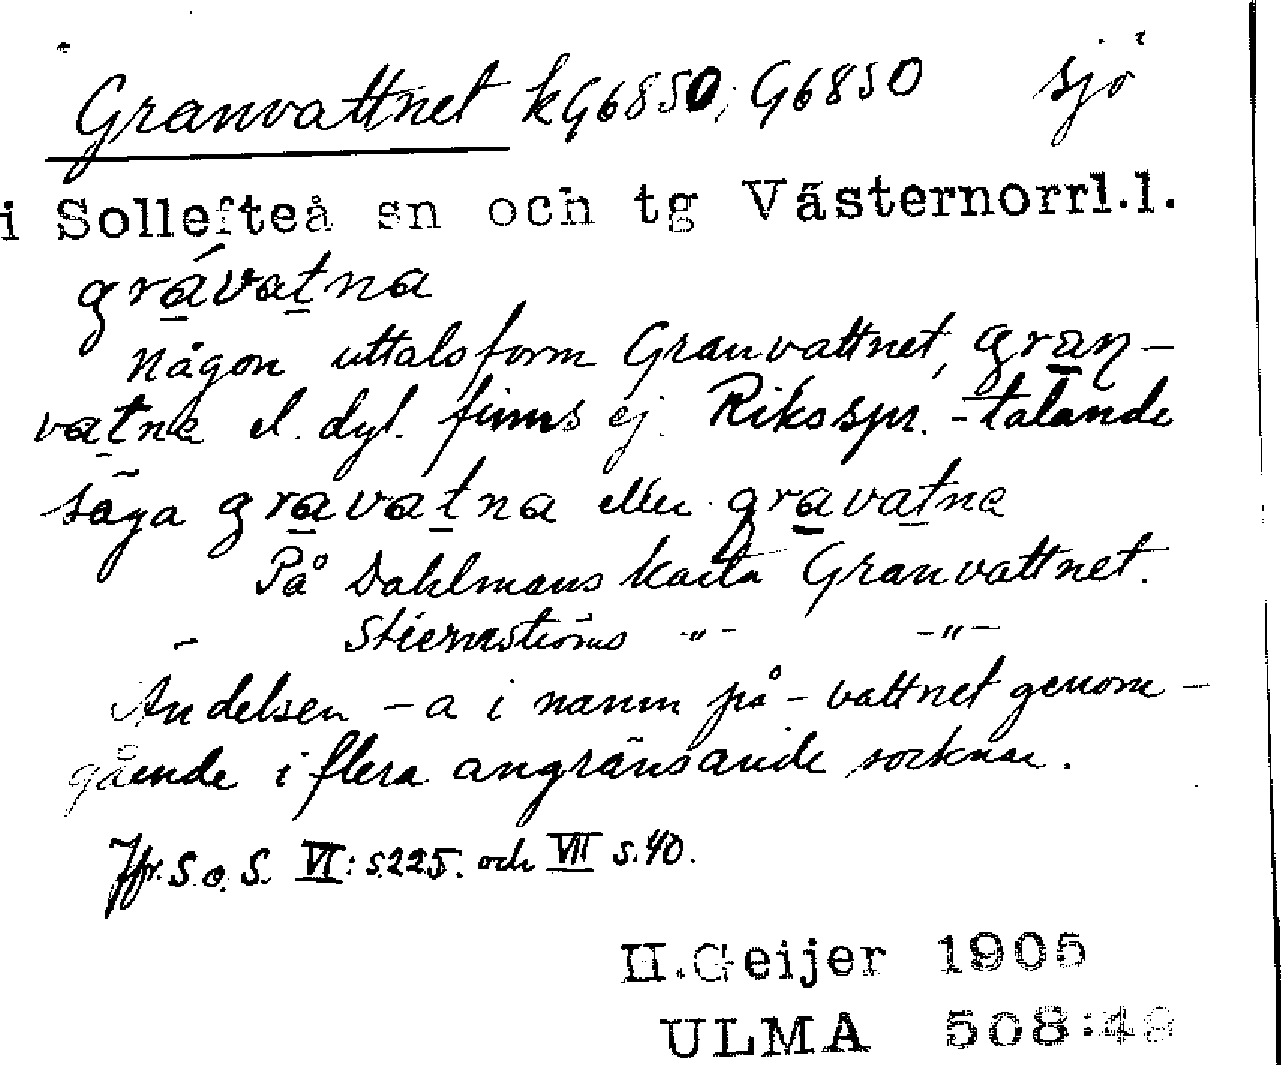 Granvattnet kG6850; G6850 sjö
i Sollefteå sn och tg Västernorrl.l.
grávatna
någon uttalsform Granvattnet, gran-
vatna el. dyl. finns ej. Riksspr.-talande
säga gravatna eller gravatna
På Dahlmans karta Granvattnet.
- Stiernströms -"- -"-
Ändelsen -a i namn på -vattnet genom-
gående i flera angränsande socknar.
Jfr. S.o.S. VI: s.225. och VII s.40.
H.Geijer 1905
ULMA 508:49